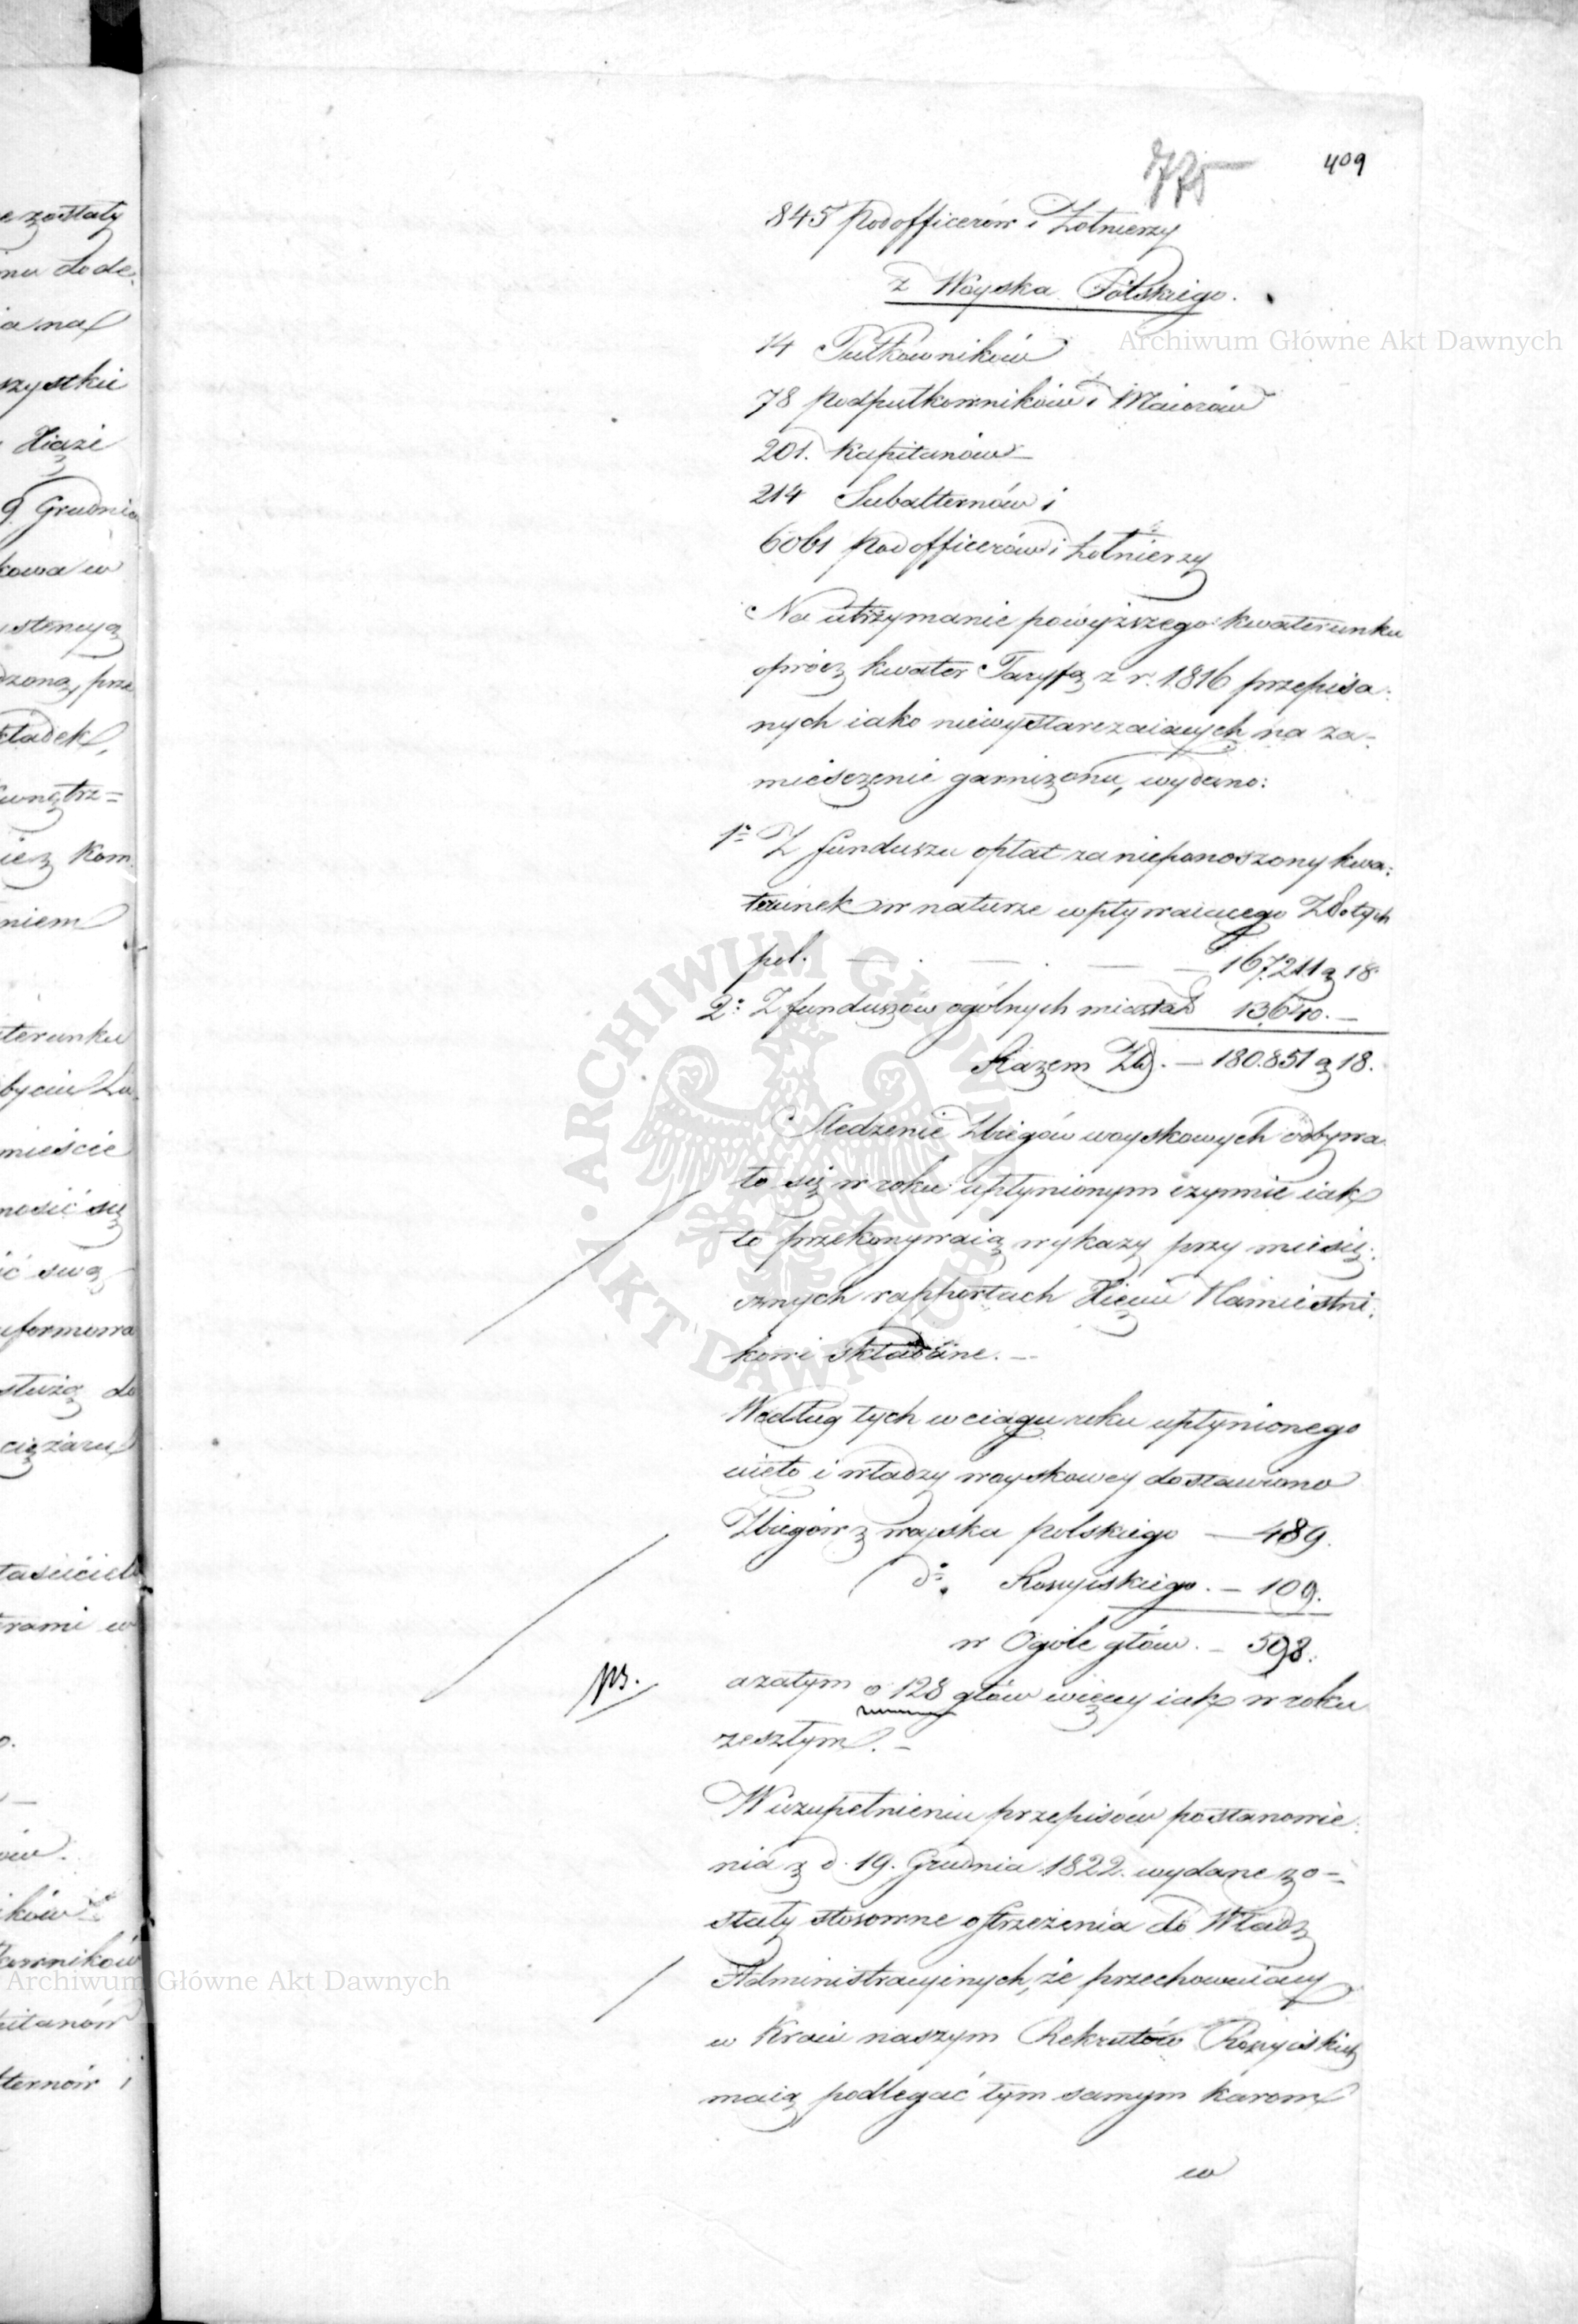 775
409
845 Podofficerów i Żołnierzy
z Woyska Polskiego.
14 Pułkowników
78 Podpułkowników i Maiorów
201. Kapitanów
214 Subalternów i
6061 Podofficerów i Żołnierzy
Na utrzymanie powyższego kwaterunku
oprócz kwater Taryfą z r. 1816 przepisa-
nych iako niewystarczaiących na za-
mieszczenie garnizonu, wydano:
1º Z funduszu opłat za nieponoszony kwa-
terunek w naturze wpływaiącego Złotych
pol. — . — . — — 167,211 g 18
2º Z funduszów ogólnych miasta 13,640. —
Razem Zł. — 180.851 g 18.
Śledzenie Zbiegów woyskowych odbywa
ło się w roku upłynionym czynnie iak
to przekonywaią wykazy przy miesię-
cznych rapportach Xięciu Namiestni-
kowi składane. —
Według tych w ciągu roku upłynionego
uięto i władzy woyskowey dostawiono
Zbiegów z woyska polskiego — 489.
dº Rossyiskiego. — 109.
w Ogóle głów. — 598.
a zatym o 128 głów więcey iak w roku
zeszłym. —
W uzupełnieniu przepisów postanowie-
nia z d. 19. Grudnia 1822. wydane zo-
stały stosowne ostrzeżenia do Władz
Administracyinych, że przechowuiący
w Kraiu naszym Rekrutów Rossyiskich
maią podlegać tym samym karom
w
Archiwum Główne Akt Dawnych
ARCHIWUM GŁÓWNE AKT DAWNYCH
Archiwum Główne Akt Dawnych